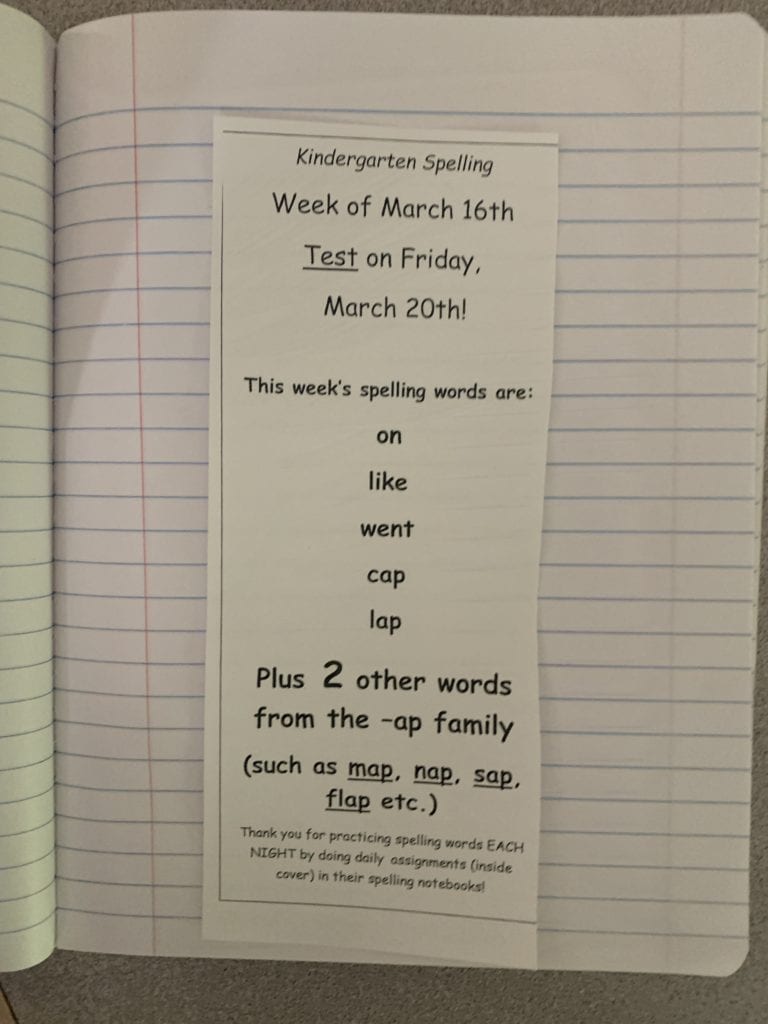 Kindergarten Spelling
Week of March 16th
Test on Friday,
March 20th!
This week's spelling words are:
on
like
went
cap
lap
Plus 2 other words
from the -ap family
(such as map, nap, sap,
flap etc.)
Thank you for practicing spelling words EACH
NIGHT by doing daily assignments (inside
cover) in their spelling notebooks!